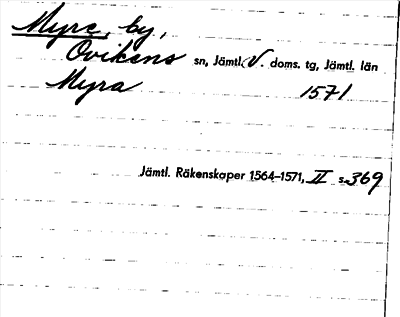 Myre, by,
Ovikens sn, Jämtl. V. doms. tg, Jämtl. län
Myra 1571
Jämtl. Räkenskaper 1564-1571, II s. 369